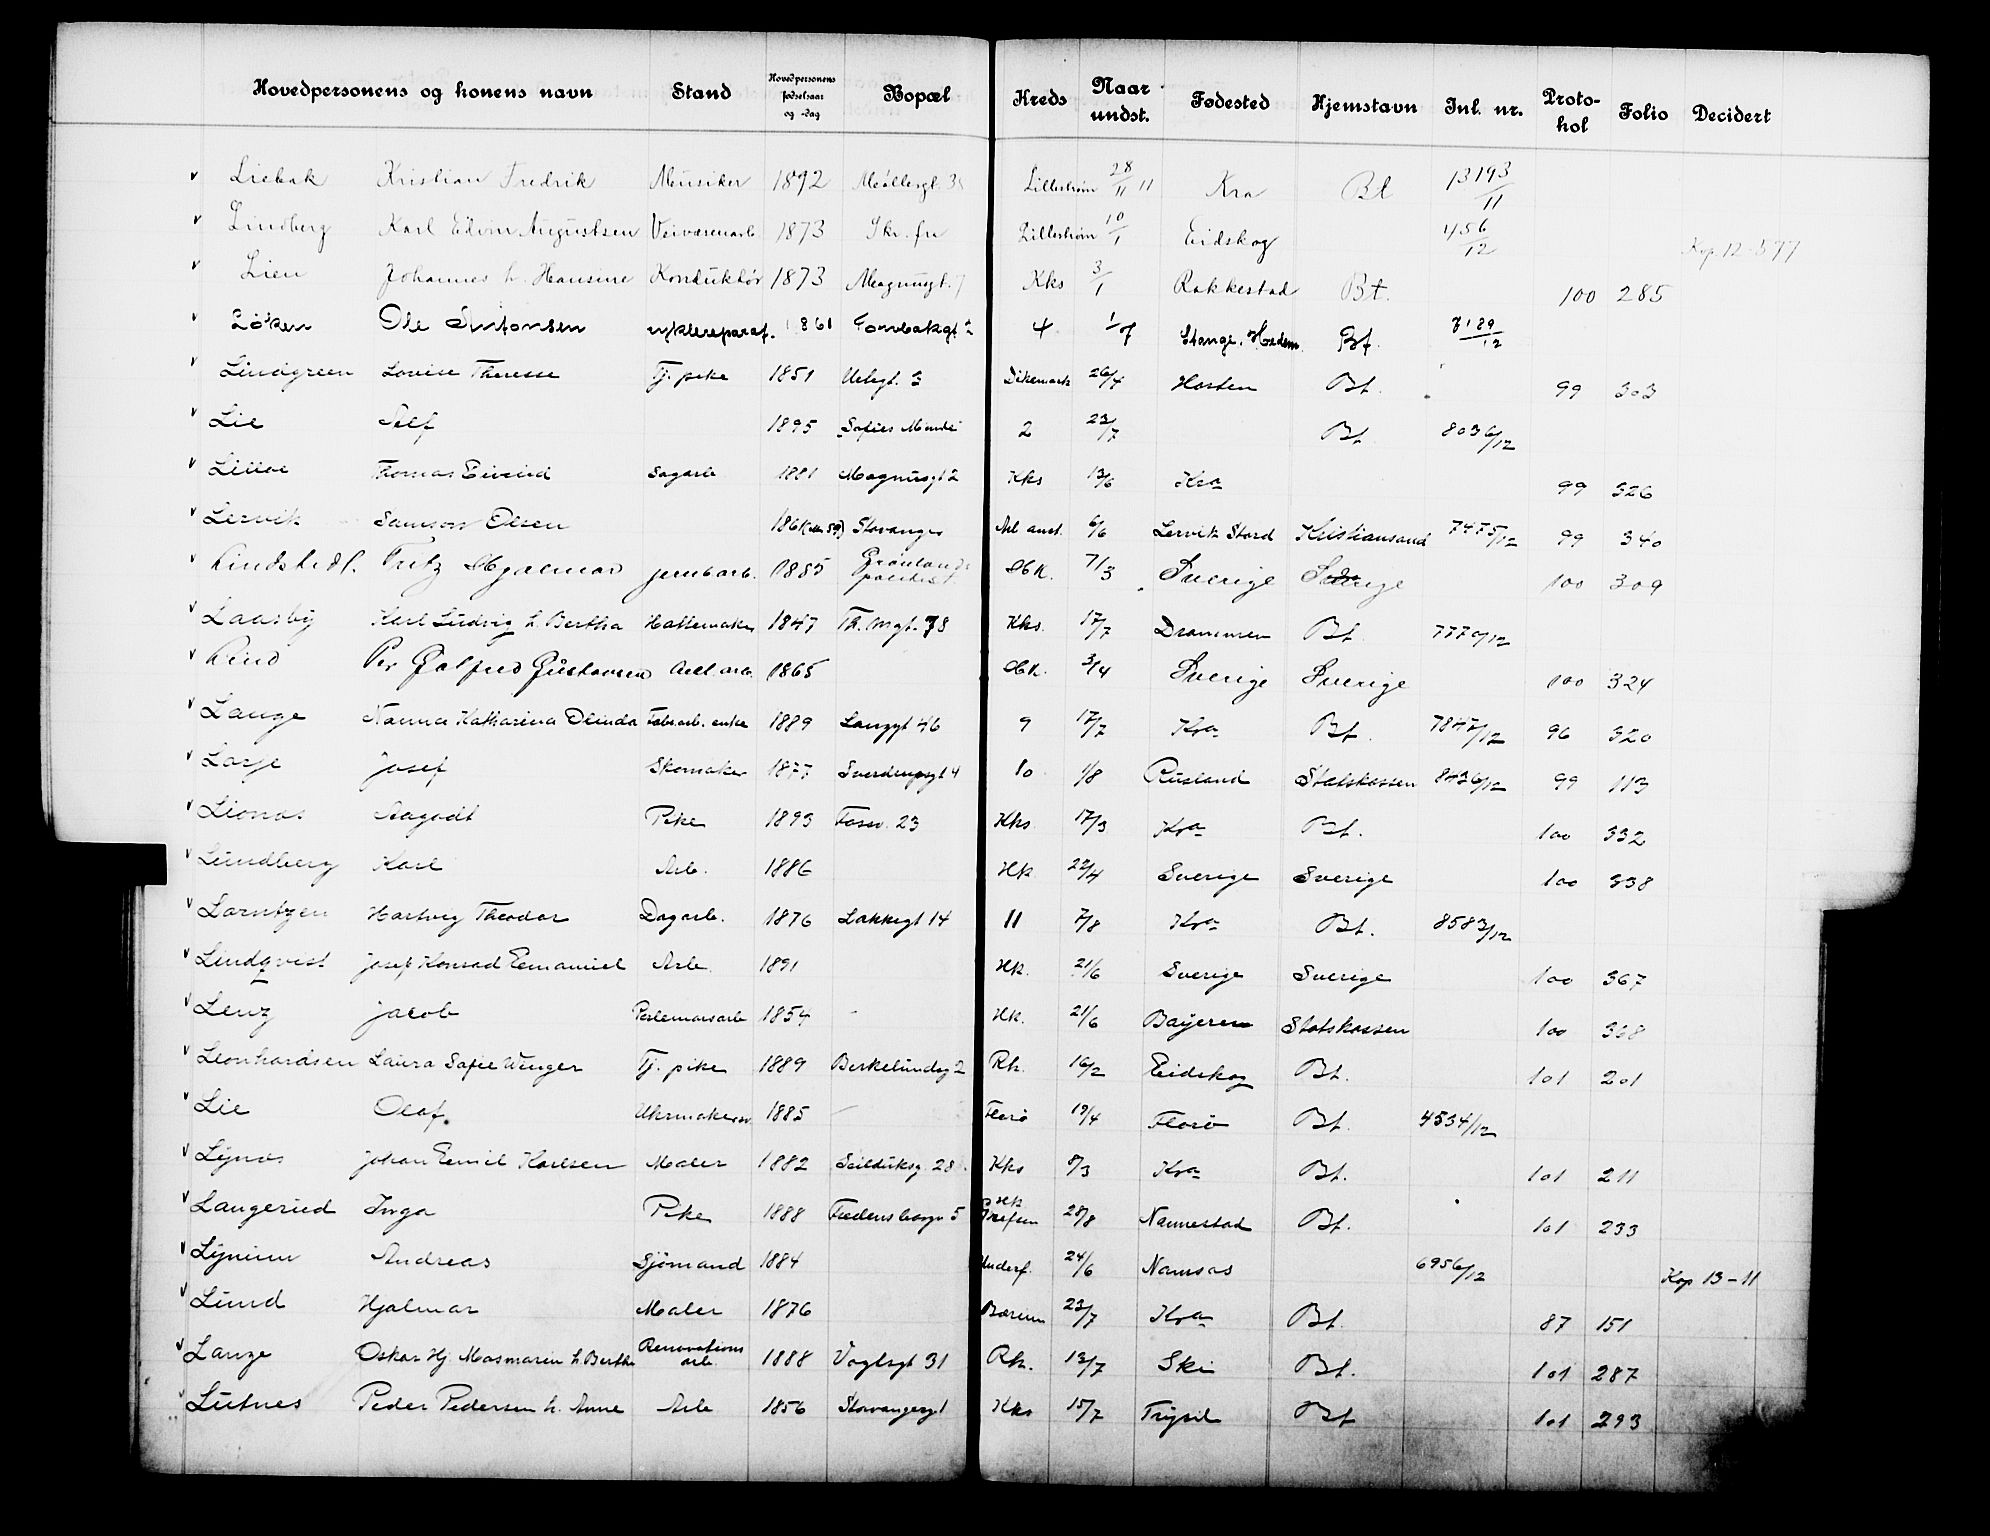 Hovedpersonens og konens navn Stand Hovedpersonens fødselsaar og -dag Bopæl Kreds Naar undst. Fødested Hjemstavn Inl. nr. Protokol Folio Decidert
Liebak Kristian Fredrik Musiker 1892 Møllergt. Lillestrøm 28/11 11 Kra Bt 13193/11
Lindberg Karl Edvin Augustsen Veivæsenarb 1873 Skr. fru Lillestrøm 10/1 Eidskog 456/12 Kop. 12-577
Lien Johannes h. Hansine Konduktør 1873 Magnusgt. 7 Kks 3/1 Rakkestad Bt. 100 285
Løken Ole Simonsen cyklereparat. 1861 4 1/7 Stange. Hedem. Bt. 7129/12
Lindgreen Lovise Therese Tj. pike 1851 Urtegt. 3 Dikemark 26/4 Horten Bt. 99 303
Lie Alf 1895 Sofies Minde 2 23/7 Bt. 8036/12
Lilloe Thomas Eivind Sagarb 1881 Magnusgt 2 Kks 13/6 Kra 99 326
Lervik Samson Olsen Stavanger 6/6 Lervik Stord Kristiansand 7475/12 99 340
Lindstedt. Fritz Hjalmar jernbarb. 1885 Grønlands politist. Hk. 7/3 Sverige Sverige 100 309
Laasby Karl Ludvig h. Bertha Hattemaker 1847 Th. Mgt. 78 Kks. 17/7 Drammen Bt. 7770/12
Lind Per Gustavsen 1865 Hk. 3/4 Sverige Sverige 100 324
Lange Nanna Katharina Olinda Fabrarb. enke 1889 Langgt 46 9 17/7 Kra Bt. 7847/12 96 320
Josef Skomaker 1877 Sverdrupsgt 4 10 1/8 Rusland Statskassen 8436/12 99 113
Lionæs Aagodt Pike 1893 Fossv. 23 Kks 17/3 Kra Bt. 100 332
Lundberg Karl Arb. 1886 Hk 22/4 Sverige Sverige 100 338
Lorntzen Hartvig Theodor Dagarb. 1876 Lakkegt 14 11 7/8 Kra Bt. 8583/12
Lindqvist Josef Konrad Emanuel Arb. 1891 Hk. 21/6 Sverige Sverige 100 367
Lenz Jacob Perlemorsarb 1854 Hk. 21/6 Bayeren Statskassen 100 368
Leonhardsen Laura Sofie Winger Tj. pike 1889 Birkelundsg 2 Rk. 16/2 Eidskog Bt. 101 201
Lie Olaf. Uhrmakersv 1885 Florø 19/4 Florø Bt. 4534/12
Lynæs Johan Emil Karlsen Maler 1882 Seilduksg. 28 Kks 8/3 Kra Bt. 101 211
Langerud Inga Pike 1888 Fredensborgv 5 Hk Grefsen 28/8 Nannestad Bt. 101 233
Lynum Andreas Sjømand 1884 Underf. 24/6 Namsos 6956/12 Kop 13-11
Lund Hjalmar Maler 1876 Bærum 23/7 Kra Bt. 87 151
Lange Oskar Hj Mosmarin h. Berthe Renovations arb. 1888 Vogtsgt 31 Rk. 13/7 Ski Bt. 101 287
Lutnes Peder Pedersen h. Anne Arb 1856 Stavangergt Kks 15/7 Trysil Bt 101 293